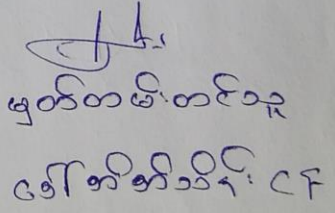 မှတ်တမ်းတင်သူ
ဒေါ်တိတိသိန်း CF